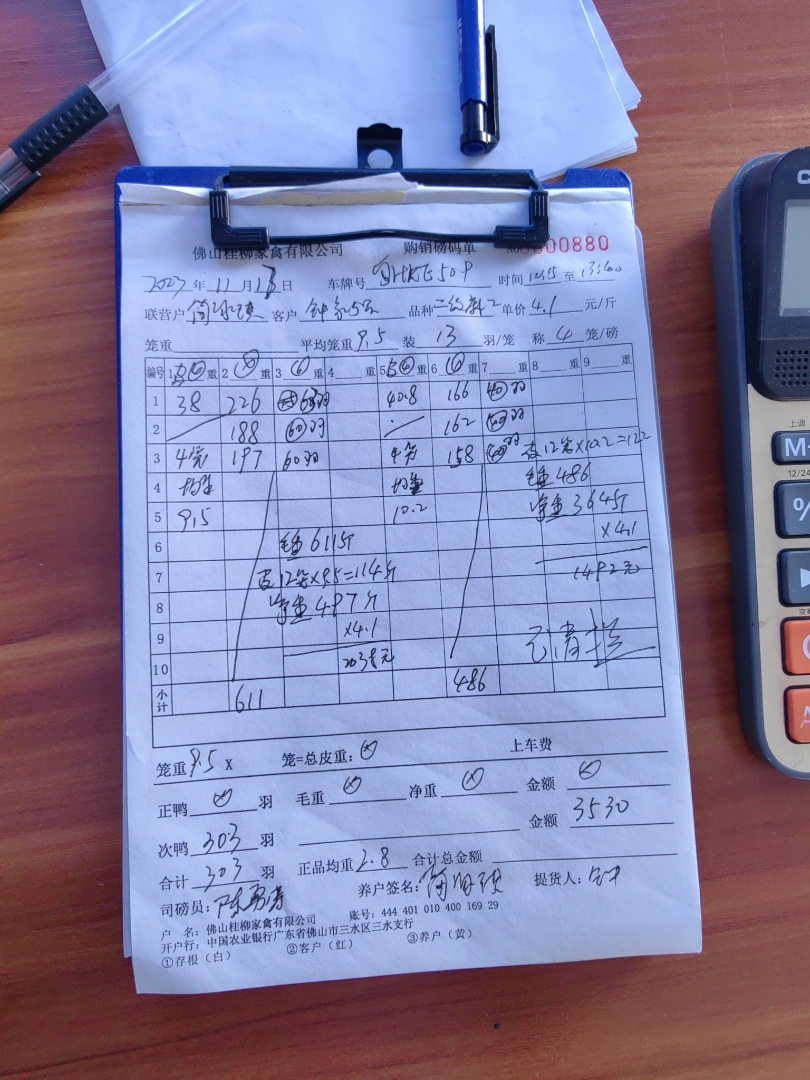 佛山桂柳家禽有限公司 购销磅码单 No 0000880
2023年11月13日 车牌号 时间 至
联营户 客户 品种 单价4.1元/斤
笼重 平均笼重9.5 装13羽/笼 称4笼/磅
编号 1 重 2 重 3 重 4 重 5 重 6 重 7 重 8 重 9 重
1 38 226 63羽 40.8 166 40羽
2 188 60羽 162 40羽
3 4笼 197 60羽 4笼 158 40羽 皮12笼×10.2=122
4 均重 均重 毛重486
5 9.5 10.2 净重364斤
6 毛重611斤 ×4.1
7 皮12笼×9.5=114斤 1492元
8 净重497斤
9 ×4.1 已清栏
10 2038元
小计 611 486
笼重9.5 x 笼=总皮重: 上车费
正鸭 羽 毛重 净重 金额
次鸭303羽 金额3530
合计303羽 正品均重2.8 合计总金额
司磅员: 养户签名: 提货人:钟
户 名: 佛山桂柳家禽有限公司 账号: 444 401 010 400 169 29
开户行: 中国农业银行广东省佛山市三水区三水支行
①存根(白) ②客户(红) ③养户(黄)
M
12/24
%